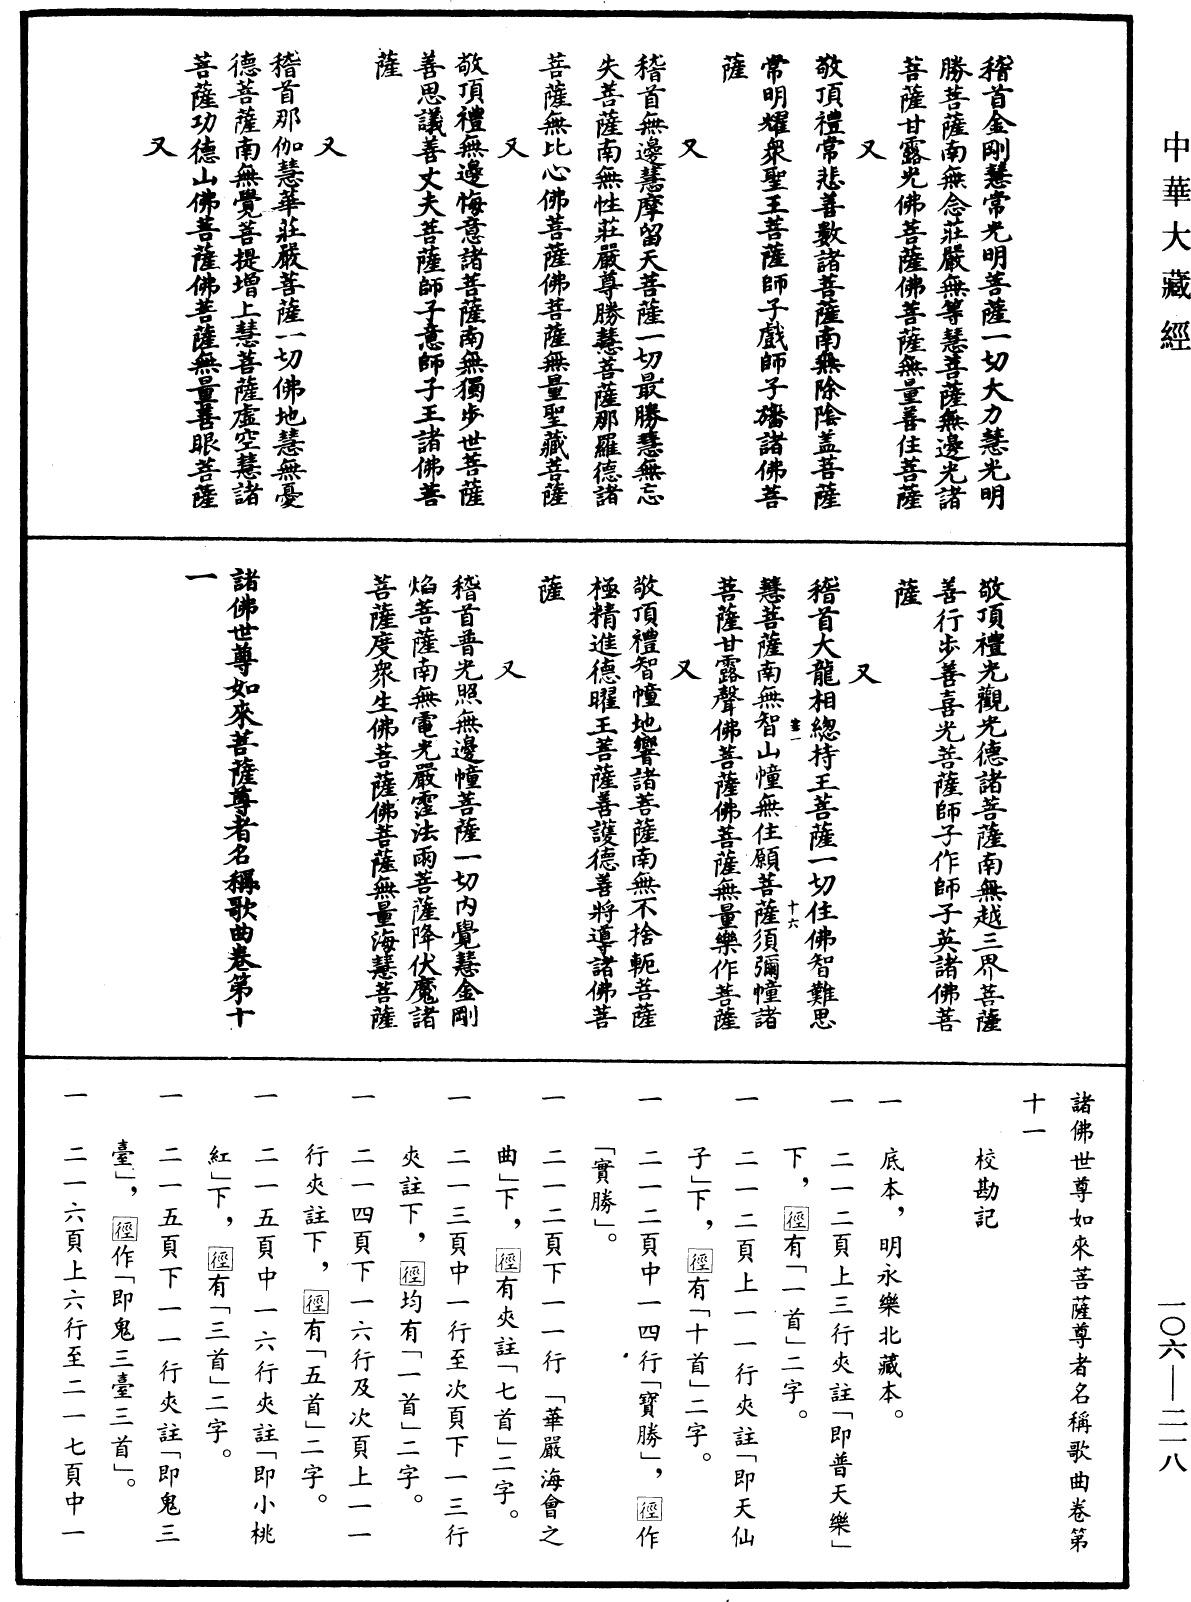 中華大藏經
稽首金剛慧常光明菩薩一切大力慧光明
勝菩薩南無念莊嚴無等慧菩薩無邊光諸
菩薩甘露光佛菩薩佛菩薩無量善住菩薩
又
敬頂禮常悲善數諸菩薩南無除陰盖菩薩
常明耀衆聖王菩薩師子戲師子旛諸佛菩
薩
又
稽首無邊慧摩留天菩薩一切最勝慧無忘
失菩薩南無性莊嚴尊勝慧菩薩那羅德諸
菩薩無比心佛菩薩佛菩薩無量聖藏菩薩
又
敬頂禮無邊悔意諸菩薩南無獨步世菩薩
善思議善丈夫菩薩師子意師子王諸佛菩
薩
又
稽首那伽慧華莊嚴菩薩一切佛地慧無憂
德菩薩南無覺菩提增上慧菩薩虛空慧諸
菩薩功德山佛菩薩佛菩薩無量善眼菩薩
又
敬頂禮光觀光德諸菩薩南無越三界菩薩
善行步善喜光菩薩師子作師子英諸佛菩
薩
又
稽首大龍相緫持王菩薩一切住佛智難思
十六
慧菩薩南無智山幢無住願菩薩須彌幢諸
菩薩甘露聲佛菩薩佛菩薩無量樂作菩薩
又
敬頂禮智幢地響諸菩薩南無不捨軛菩薩
極精進德曜王菩薩善護德善將導諸佛菩
薩
又
稽首普光照無邊幢菩薩一切內覺慧金剛
焰菩薩南無電光嚴霔法雨菩薩降伏魔諸
菩薩度衆生佛菩薩佛菩薩無量海慧菩薩
諸佛世尊如來菩薩尊者名稱歌曲卷第十
一
諸佛世尊如來菩薩尊者名稱歌曲卷第
十一
校勘記
一　底本，明永樂北藏本。
一　二一二頁上三行夾註「即普天樂」
下，徑有「一首」二字。
一　二一二頁上一一行夾註「即天仙
子」下，徑有「十首」二字。
一　二一二頁中一四行「寶勝」，徑作
「實勝」。
一　二一二頁下一一行「華嚴海會之
曲」下，徑有夾註「七首」二字。
一　二一三頁中一行至次頁下一三行
夾註下，徑均有「一首」二字。
一　二一四頁下一六行及次頁上一一
行夾註下，徑有「五首」二字。
一　二一五頁中一六行夾註「即小桃
紅」下，徑有「三首」二字。
一　二一五頁下一一行夾註「即鬼三
臺」，徑作「即鬼三臺三首」。
一　二一六頁上六行至二一七頁中一
一〇六—二一八